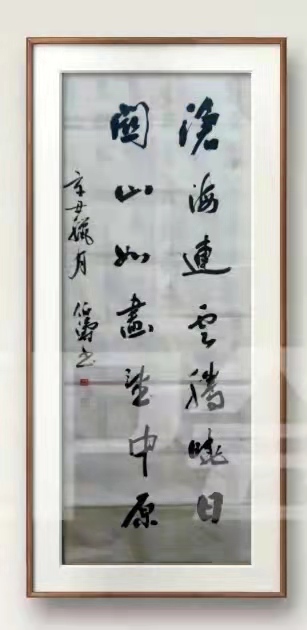 滄海連雲騰曉日
關山如畫望中原
辛丑臘月 伯濤书